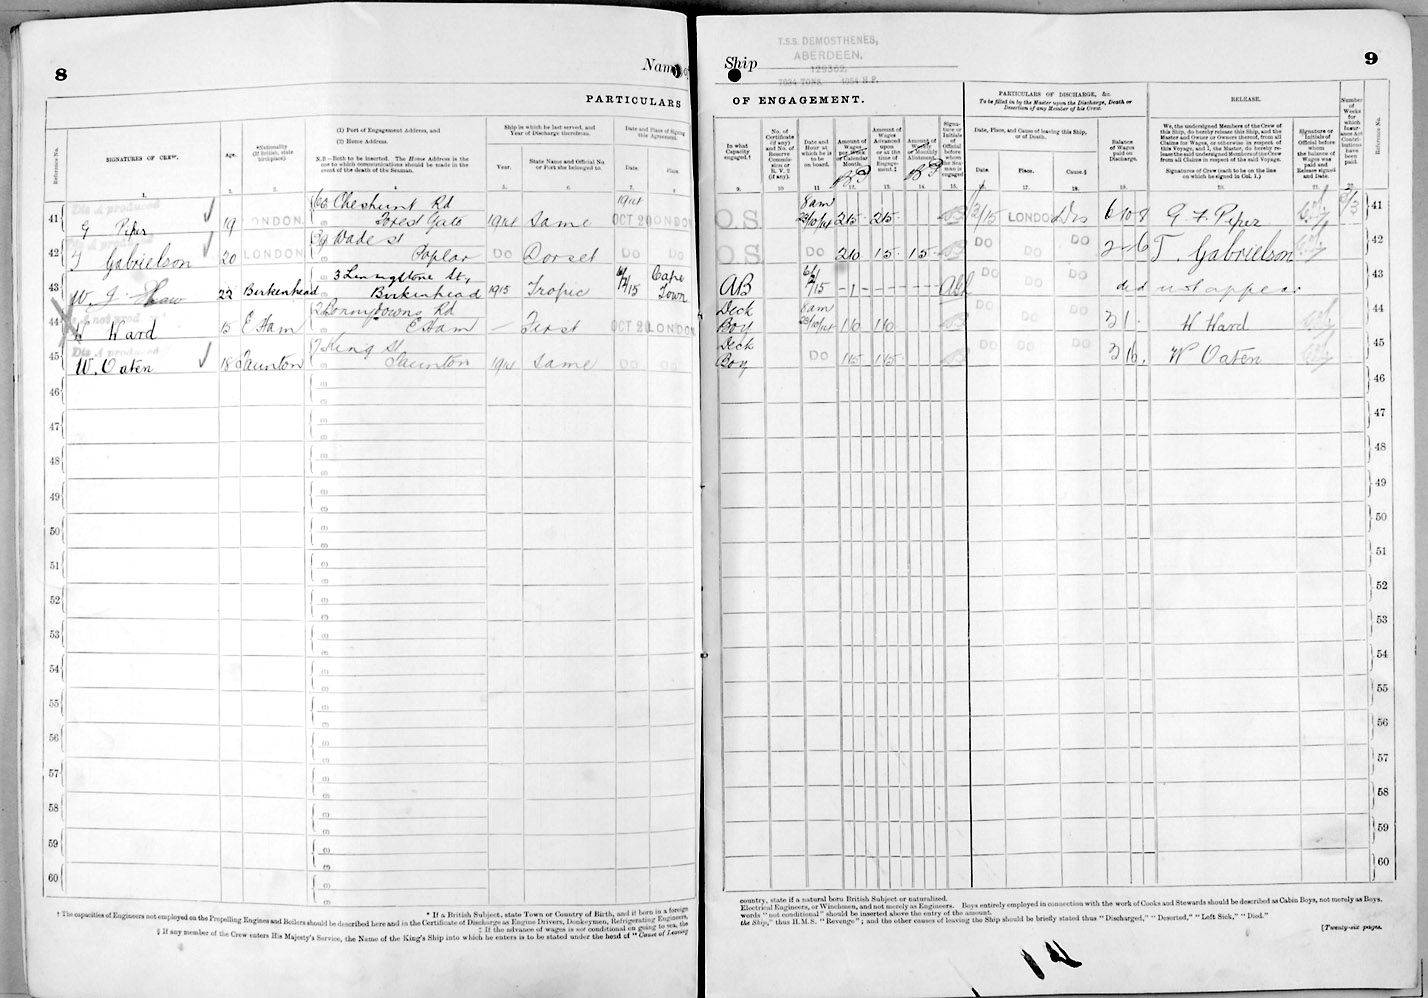 8
Name of
PARTICULARS
Reference No.
SIGNATURES OF CREW.
Age.
*Nationality
(If British, state
birthplace).
(1) Port of Engagement Address, and
(2) Home Address.
N.B.—Both to be inserted. The Home Address is the
one to which communications should be made in the
event of the death of the Seaman.
Ship in which he last served, and
Year of Discharge therefrom.
Year.
State Name and Official No.
or Port she belonged to.
Date and Place of Signing
this Agreement.
Date.
Place.
1.
2.
3.
4.
5.
6.
7.
8
41 G Piper 19 LONDON. 66 Cheshunt Rd
Forest Gate 1914 Same 1914 OCT 20 LONDON
42 T Gabrielson 20 LONDON 39 Wade st
Poplar DO Dorset DO DO
43 W. J. Shaw 22 Birkenhead 3 Livingstone St,
Birkenhead 1915 Tropic 15 Cape Town
44 H Ward 15 E Ham Rd
E Ham — First OCT 20 LONDON
45 W. Oaten 18 Taunton 7 King St
Taunton 1914 Same DO DO
46
47
48
49
50
51
52
53
54
55
56
57
58
59
60
* If a British Subject, state Town or Country of Birth, and if born in a foreign
† The capacities of Engineers not employed on the Propelling Engines and Boilers should be described here and in the Certificate of Discharge as Engine Drivers, Donkeymen, Refrigerating Engineers,
‡ If the advance of wages is not conditional on going to sea, the
§ If any member of the Crew enters His Majesty's Service, the Name of the King's Ship into which he enters is to be stated under the head of "Cause of Leaving
T.S.S. DEMOSTHENES,
ABERDEEN,
129362.
Ship
9
OF ENGAGEMENT.
PARTICULARS OF DISCHARGE, &c.
To be filled in by the Master upon the Discharge, Death or
Desertion of any Member of his Crew.
RELEASE.
Number
of
Weeks
for
which
Insur-
ance Act
Contri-
butions
have
been
paid.
Reference No.
In what
Capacity
engaged.†
No. of
Certificate
(if any)
and No. of
Reserve
Commis-
sion or
R.V.2
(if any).
Date and
Hour at
which he is
to be
on board.
Amount of
Wages
per week
or Calendar
Month.
Amount of
Wages
Advanced
upon
or at the
time of
Engage-
ment.‡
Amount of
Weekly
or Monthly
Allotment.
Signa-
ture or
Initials
of
Official
before
whom
the Sea-
man is
engaged
Date, Place, and Cause of leaving this Ship,
or of Death.
Date.
Place.
Cause.§
Balance
of Wages
paid on
Discharge.
We, the undersigned Members of the Crew of
this Ship, do hereby release this Ship, and the
Master and Owner or Owners thereof, from all
Claims for Wages, or otherwise in respect of
this Voyage, and I, the Master, do hereby re-
lease the said undersigned Members of the Crew
from all Claims in respect of the said Voyage.
Signatures of Crew (each to be on the line
on which he signed in Col. 1.)
Signature or
Initials of
Official before
whom
the balance of
Wages was
paid and
Release signed
and Date.
9.
10
11
12.
13.
14.
15.
17.
18.
19.
20.
21.
O.S. 8am 23/10/14 2 15 2 15 LONDON Dis 6 10 8 G F Piper 41
O.S. DO 2 10 1 5 1 5 DO DO DO T. Gabrielson 42
AB 15 - 1 - DO DO did not appear 43
Deck Boy 8am 23/10/14 1 0 1 0 DO DO DO 3 1 H Ward 44
Deck Boy DO 1 5 1 5 DO DO DO W Oaten 45
46
47
48
49
50
51
52
53
54
55
56
57
58
59
60
country, state if a natural born British Subject or naturalized.
Electrical Engineers, or Winchmen, and not merely as Engineers. Boys entirely employed in connection with the work of Cooks and Stewards should be described as Cabin Boys, not merely as Boys.
words "not conditional" should be inserted above the entry of the amount.
the Ship," thus H.M.S. "Revenge"; and the other causes of leaving the Ship should be briefly stated thus "Discharged," "Deserted," "Left Sick," "Died."
[Twenty-six pages.
14